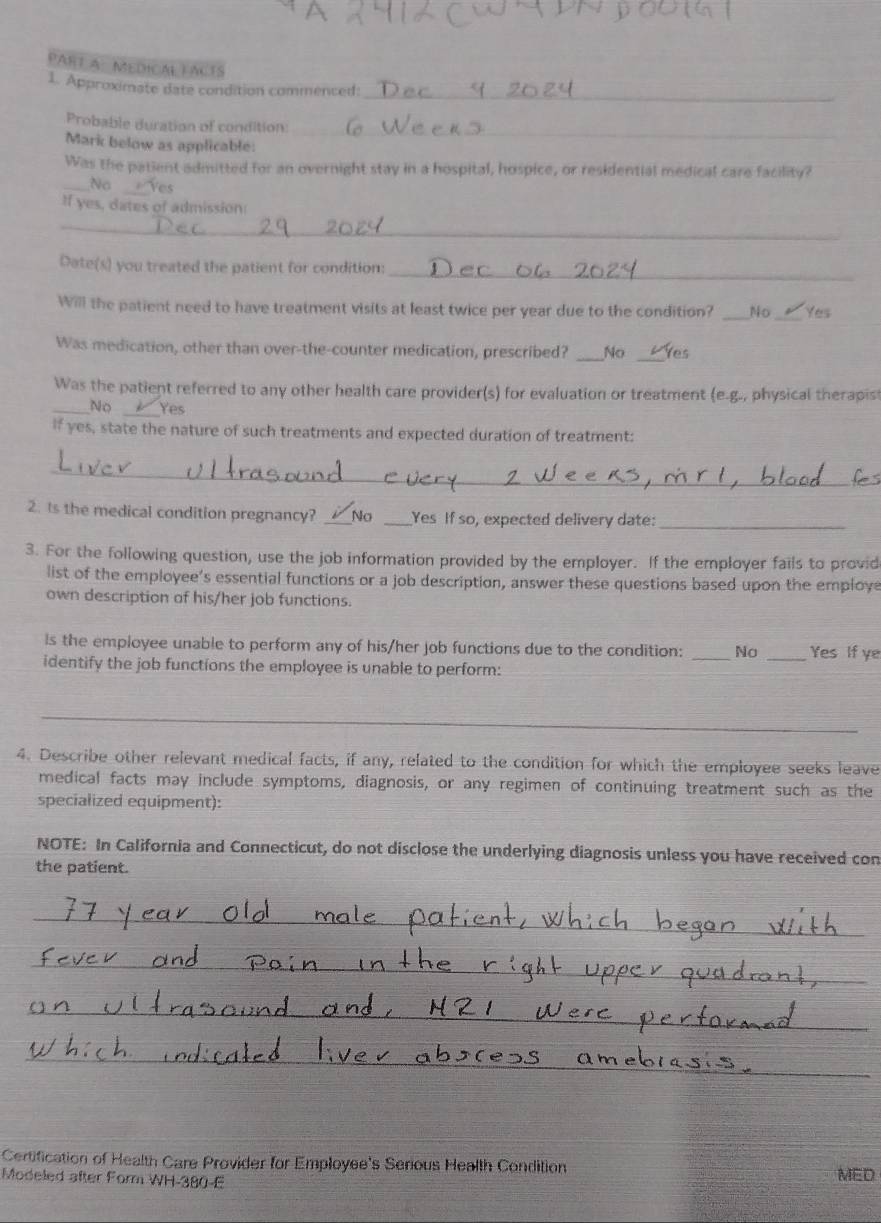 PART A: MEDICAL FACTS
1. Approximate date condition commenced: Dec 4 2024
Probable duration of condition: 6 Weeks
Mark below as applicable:
Was the patient admitted for an overnight stay in a hospital, hospice, or residential medical care facility?
___No ✓Yes
If yes, dates of admission:
Dec 29 2024
Date(s) you treated the patient for condition: Dec 06 2024
Will the patient need to have treatment visits at least twice per year due to the condition? ___No ✓Yes
Was medication, other than over-the-counter medication, prescribed? ___No ✓Yes
Was the patient referred to any other health care provider(s) for evaluation or treatment (e.g., physical therapist
___No ✓Yes
If yes, state the nature of such treatments and expected duration of treatment:
Liver Ultrasound every 2 Weeks, mri, blood tes
2. Is the medical condition pregnancy? ✓No ___Yes If so, expected delivery date:
3. For the following question, use the job information provided by the employer. If the employer fails to provid
list of the employee's essential functions or a job description, answer these questions based upon the employe
own description of his/her job functions.
Is the employee unable to perform any of his/her job functions due to the condition: ___ No ___ Yes If ye
identify the job functions the employee is unable to perform:
4. Describe other relevant medical facts, if any, related to the condition for which the employee seeks leave
medical facts may include symptoms, diagnosis, or any regimen of continuing treatment such as the
specialized equipment):
NOTE: In California and Connecticut, do not disclose the underlying diagnosis unless you have received con
the patient.
77 year old male patient, which began with
fever and pain in the right upper quadrant,
an ultrasound and, MRI were performed
which indicated liver abscess amebiasis.
Certification of Health Care Provider for Employee's Serious Health Condition
Modeled after Form WH-380-E
MED